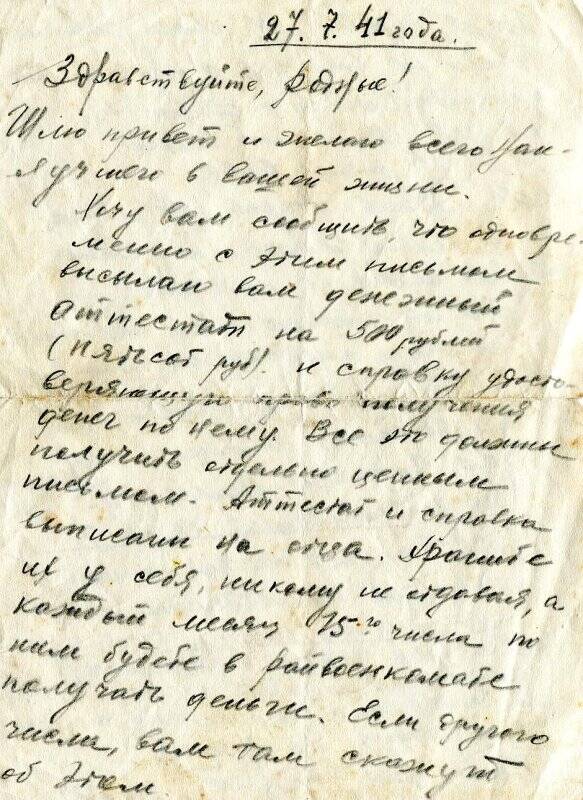 27. 7. 41 года.
Здравствуйте, родные!
Шлю привет и желаю всего наи-
лучшего в вашей жизни.
Хочу вам сообщить, что одновре-
менно с этим письмом
высылаю вам денежный
Аттестат на 500 рублей
(пятьсот руб). и справку удосто-
веряющую право получения
денег по нему. Все это должны
получить отдельно ценным
письмом. Аттестат и справка
выписаны на отца. Храните
их у себя, никому не отдавая, а
каждый месяц 15го числа по
ним будете в райвоенкомате
получать деньги. Если другого
числа, вам там скажут
об этом.